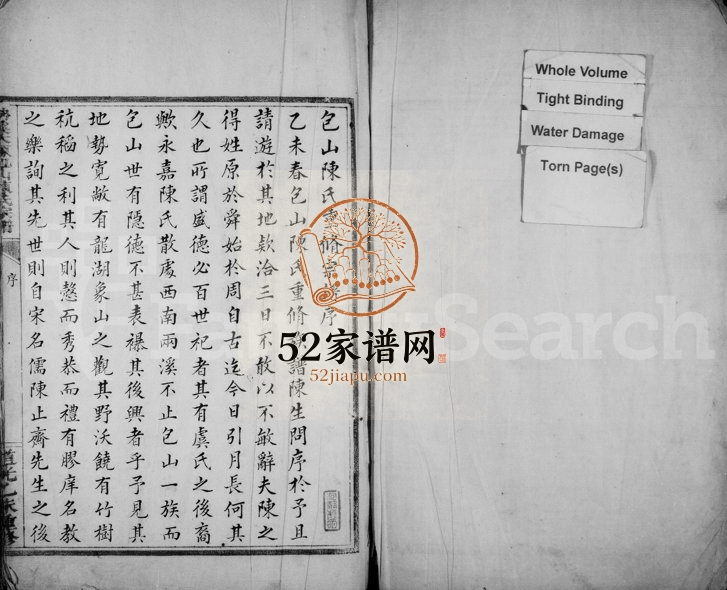 包山陳氏重修宗譜序
乙未春包山陳氏重修宗譜陳生問序於予且
請遊於其地欵洽三日不敢以不敏辭夫陳之
得姓原於舜始於周自古迄今日引月長何其
久也所謂盛德必百世祀者其有虞氏之後裔
歟永嘉陳氏散處西南兩溪不止包山一族而
包山世有隱德不甚表襮其後興者乎予見其
地勢寬敞有龍湖象山之觀其野沃饒有竹樹
秔稻之利其人則愨而秀恭而禮有膠庠名教
之樂詢其先世則自宋名儒陳止齊先生之後
序
Whole Volume
Tight Binding
Water Damage
Torn Page(s)
52家谱网
52jiapu.com
Search